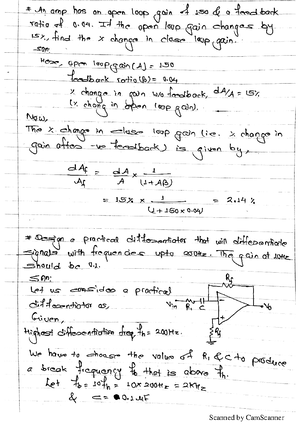 * An amp has an open loop gain of 150 & a feedback
ratio of 0.04. If the open loop gain changes by
15%, find the % change in close loop gain.
Soln:
Here, open loop gain (A) = 150
feedback ratio (β) = 0.04
% change in gain w/o feedback, dA/A = 15%
(% chang in open loop gain).
Now,
The % change in close loop gain (i.e. % change in
gain after -ve feedback) is given by,
dAf/Af = dA/A × 1/(1+Aβ)
= 15% × 1/(1+150×0.04) = 2.14%
* Design a practical differentiator that will differentiate
signals with frequencies upto 200Hz. The gain at 10Hz
should be 0.1.
Soln:
Let us consider a practical
differentiator as,
Given,
Highest differentiation freq, fh = 200Hz.
Vin R1 C Rf Vo
We have to choose the value of R1 & C to produce
a break frequency fb that is above fh.
Let fb = 10fh = 10×200Hz = 2KHz
& C = 0.1μF
Scanned by CamScanner